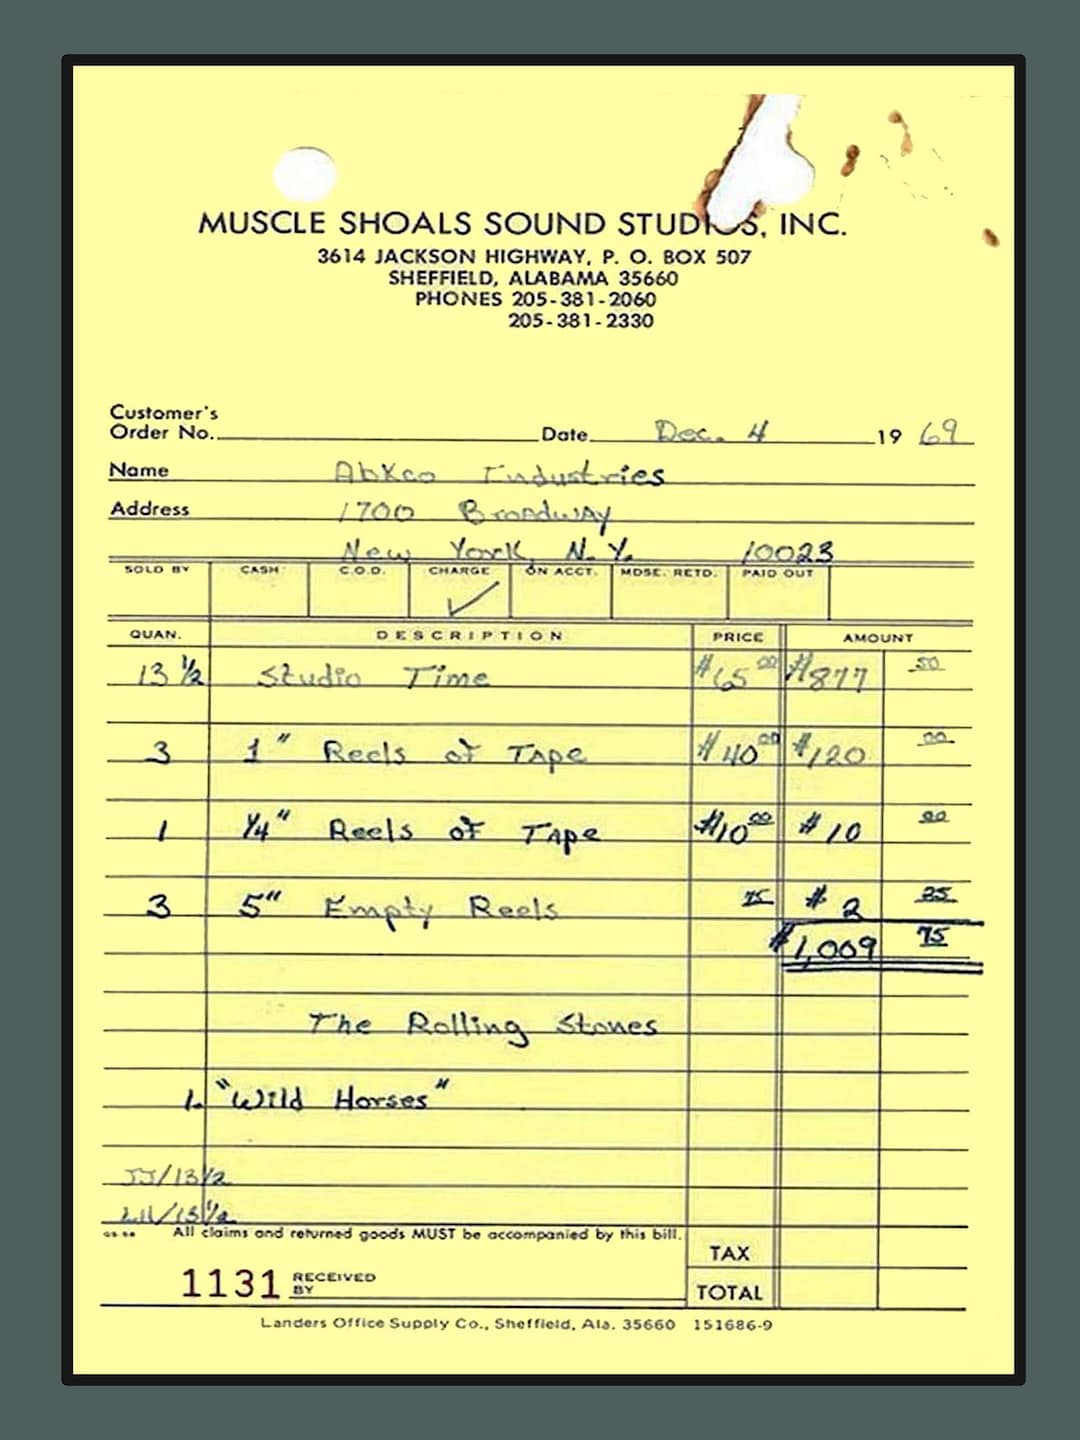 MUSCLE SHOALS SOUND STUDIOS, INC.
3614 JACKSON HIGHWAY, P. O. BOX 507
SHEFFIELD, ALABAMA 35660
PHONES 205-381-2060
205-381-2330
Customer's
Order No. Date Dec. 4 19 69
Name Abkco Industries
Address 1700 Broadway
New York, N.Y. 10023
SOLD BY CASH C.O.D. CHARGE ON ACCT. MDSE. RETD. PAID OUT
✓
QUAN. DESCRIPTION PRICE AMOUNT
13 ½ Studio Time $65 00 $877 50
3 1" Reels of Tape $40 00 $120 00
1 ¼" Reels of Tape $10 00 $10 00
3 5" Empty Reels 75 $2 25
$1,009 75
The Rolling Stones
1. "Wild Horses"
JJ/13½
/13½
All claims and returned goods MUST be accompanied by this bill.
TAX
1131 RECEIVED BY
TOTAL
Landers Office Supply Co., Sheffield, Ala. 35660 151686-9